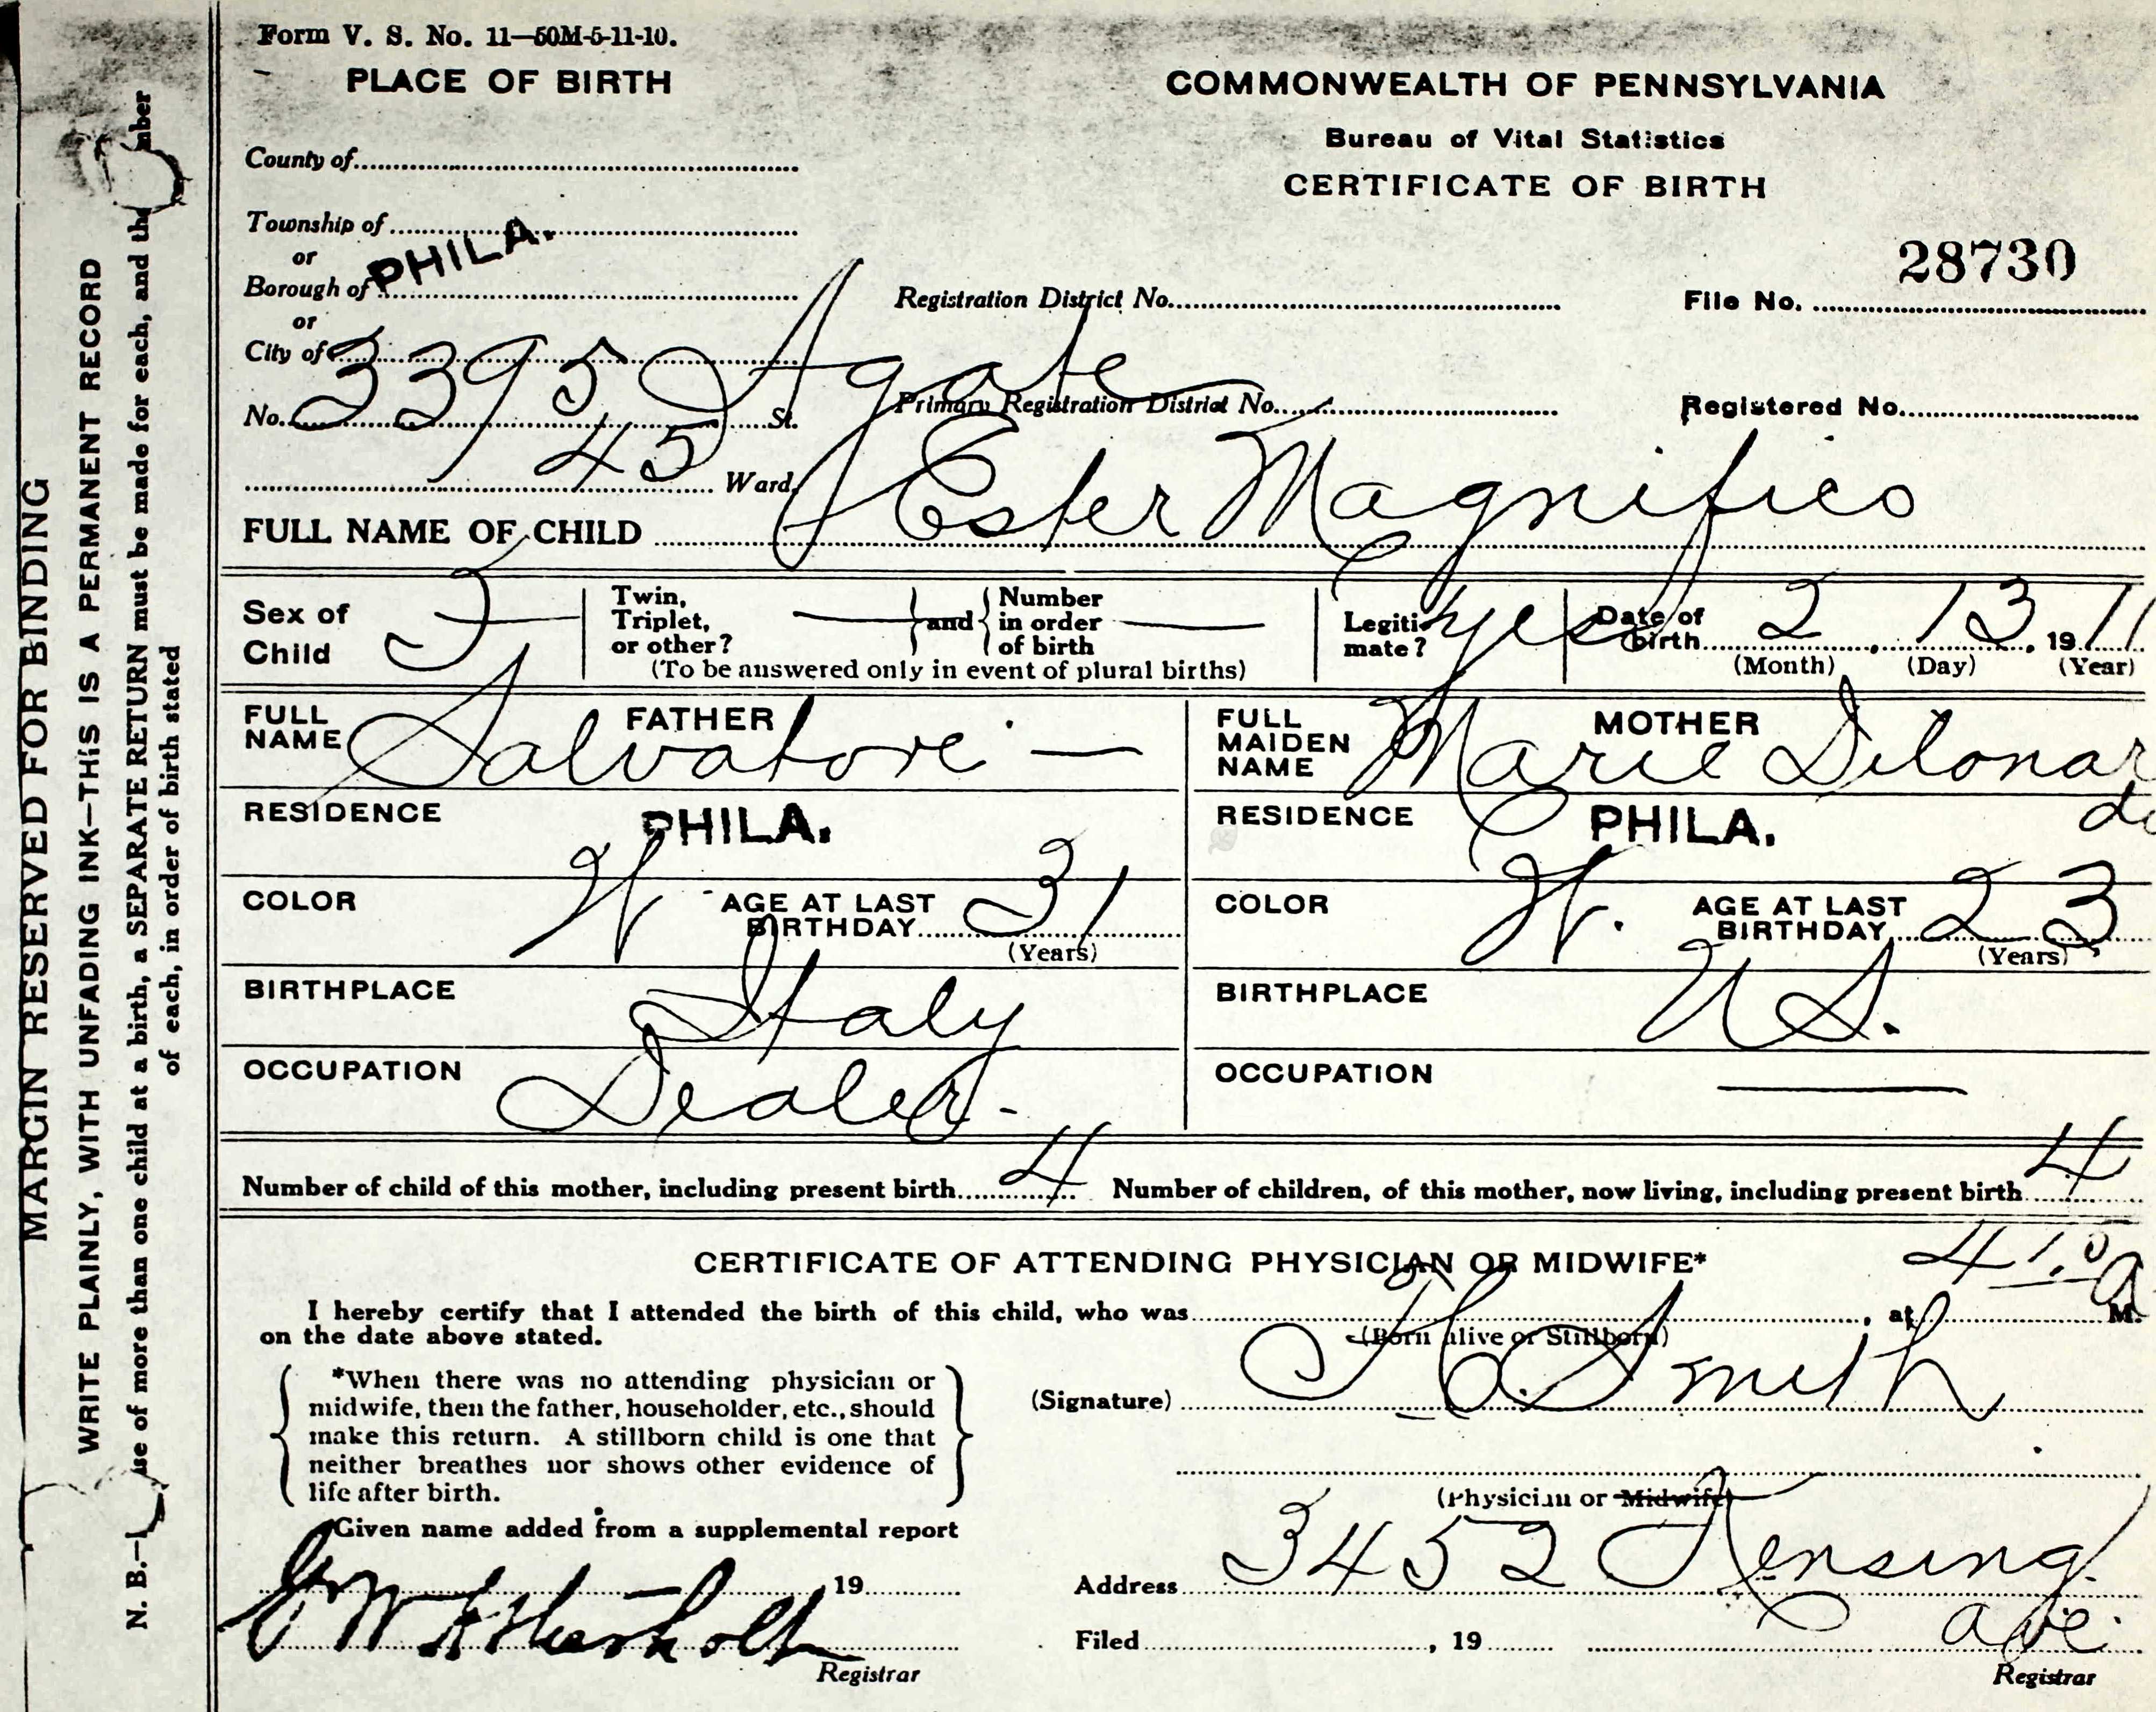 Form V. S. No. 11—50M-5-11-10.
PLACE OF BIRTH
County of
Township of
or
Borough of PHILA.
or
City of
No. 3395 Agate St.
45 Ward.
COMMONWEALTH OF PENNSYLVANIA
Bureau of Vital Statistics
CERTIFICATE OF BIRTH
28730
Registration District No. File No.
Primary Registration District No. Registered No.
FULL NAME OF CHILD Ester Magnifico
Sex of Child F
Twin, Triplet, or other? — and Number in order of birth —
(To be answered only in event of plural births)
Legitimate? yes
Date of birth 2 , 13 , 1911
(Month) (Day) (Year)
FATHER
FULL NAME Salvatore —
RESIDENCE PHILA.
COLOR W AGE AT LAST BIRTHDAY 31
(Years)
BIRTHPLACE Italy
OCCUPATION Dealer -
MOTHER
FULL MAIDEN NAME Marie Dilonardo
RESIDENCE PHILA.
COLOR W. AGE AT LAST BIRTHDAY 23
(Years)
BIRTHPLACE U S.
OCCUPATION —
Number of child of this mother, including present birth 4 Number of children, of this mother, now living, including present birth 4
CERTIFICATE OF ATTENDING PHYSICIAN OR MIDWIFE*
I hereby certify that I attended the birth of this child, who was , at A M.
on the date above stated. (Born alive or Stillborn)
*When there was no attending physician or
midwife, then the father, householder, etc., should
make this return. A stillborn child is one that
neither breathes nor shows other evidence of
life after birth.
(Signature) Smith
(Physician or Midwife)
Given name added from a supplemental report
19
Registrar
Address 3452 Kensing. ave.
Filed , 19
Registrar
MARGIN RESERVED FOR BINDING
WRITE PLAINLY, WITH UNFADING INK—THIS IS A PERMANENT RECORD
N. B.— se of more than one child at a birth, a SEPARATE RETURN must be made for each, and the mber
of each, in order of birth stated